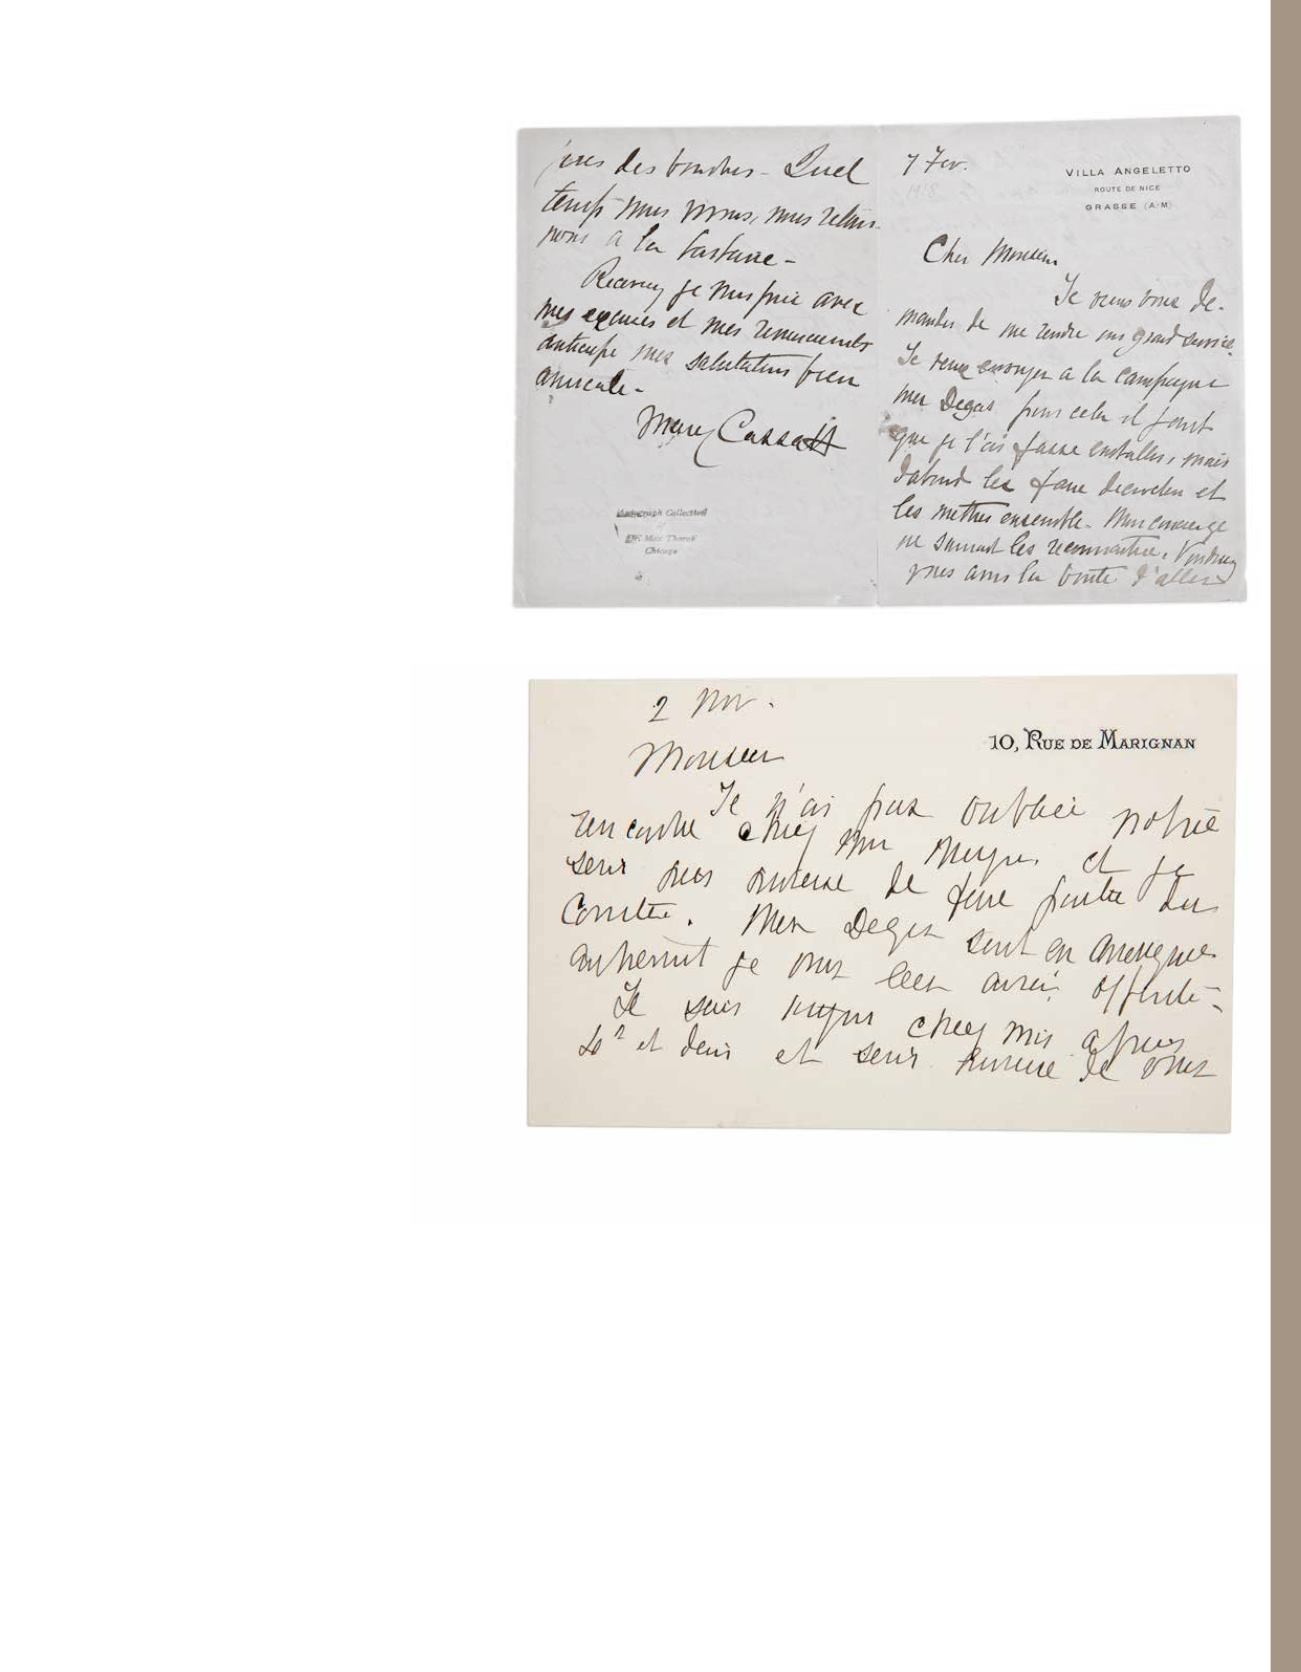 des bombes - Quel
temps nous vivons, nous retour-
nons à la barbarie -
Recevez je vous prie avec
mes excuses et mes remerciements
anticipe mes salutations bien
amicale -
Mary Cassatt
Autograph Collection
of
Dr. Max Thorek
Chicago
7 Fev.
1918
VILLA ANGELETTO
ROUTE DE NICE
GRASSE (A-M)
Cher Monsieur
Je veux vous de-
mander de me rendre un grand service.
Je veux envoyer a la campagne
mes Degas pour cela il faut
que je les fasse emballer, mais
dabord les faire decrocher et
les mettres ensemble - Mon concierge
ne saurait les reconnaitre. Voudriez
vous avoir la bonté d'aller
2 Nov.
10, RUE DE MARIGNAN
Monsieur
Je n'ai pas oubliée notre
rencontre chez et je
serai heureuse de faire partie du
Comitée. Mes Degas sont en Amerique
autrement je vous les aurai offerte -
Je suis toujours chez moi apres
et demi et serai heureuse de vous